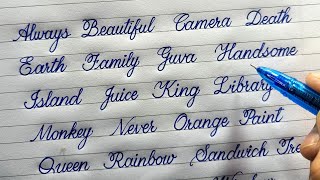 Always Beautiful Camera Death
Earth Family Guva Handsome
Island Juice King Library
Monkey Never Orange Paint
Queen Rainbow Sandwich Tre